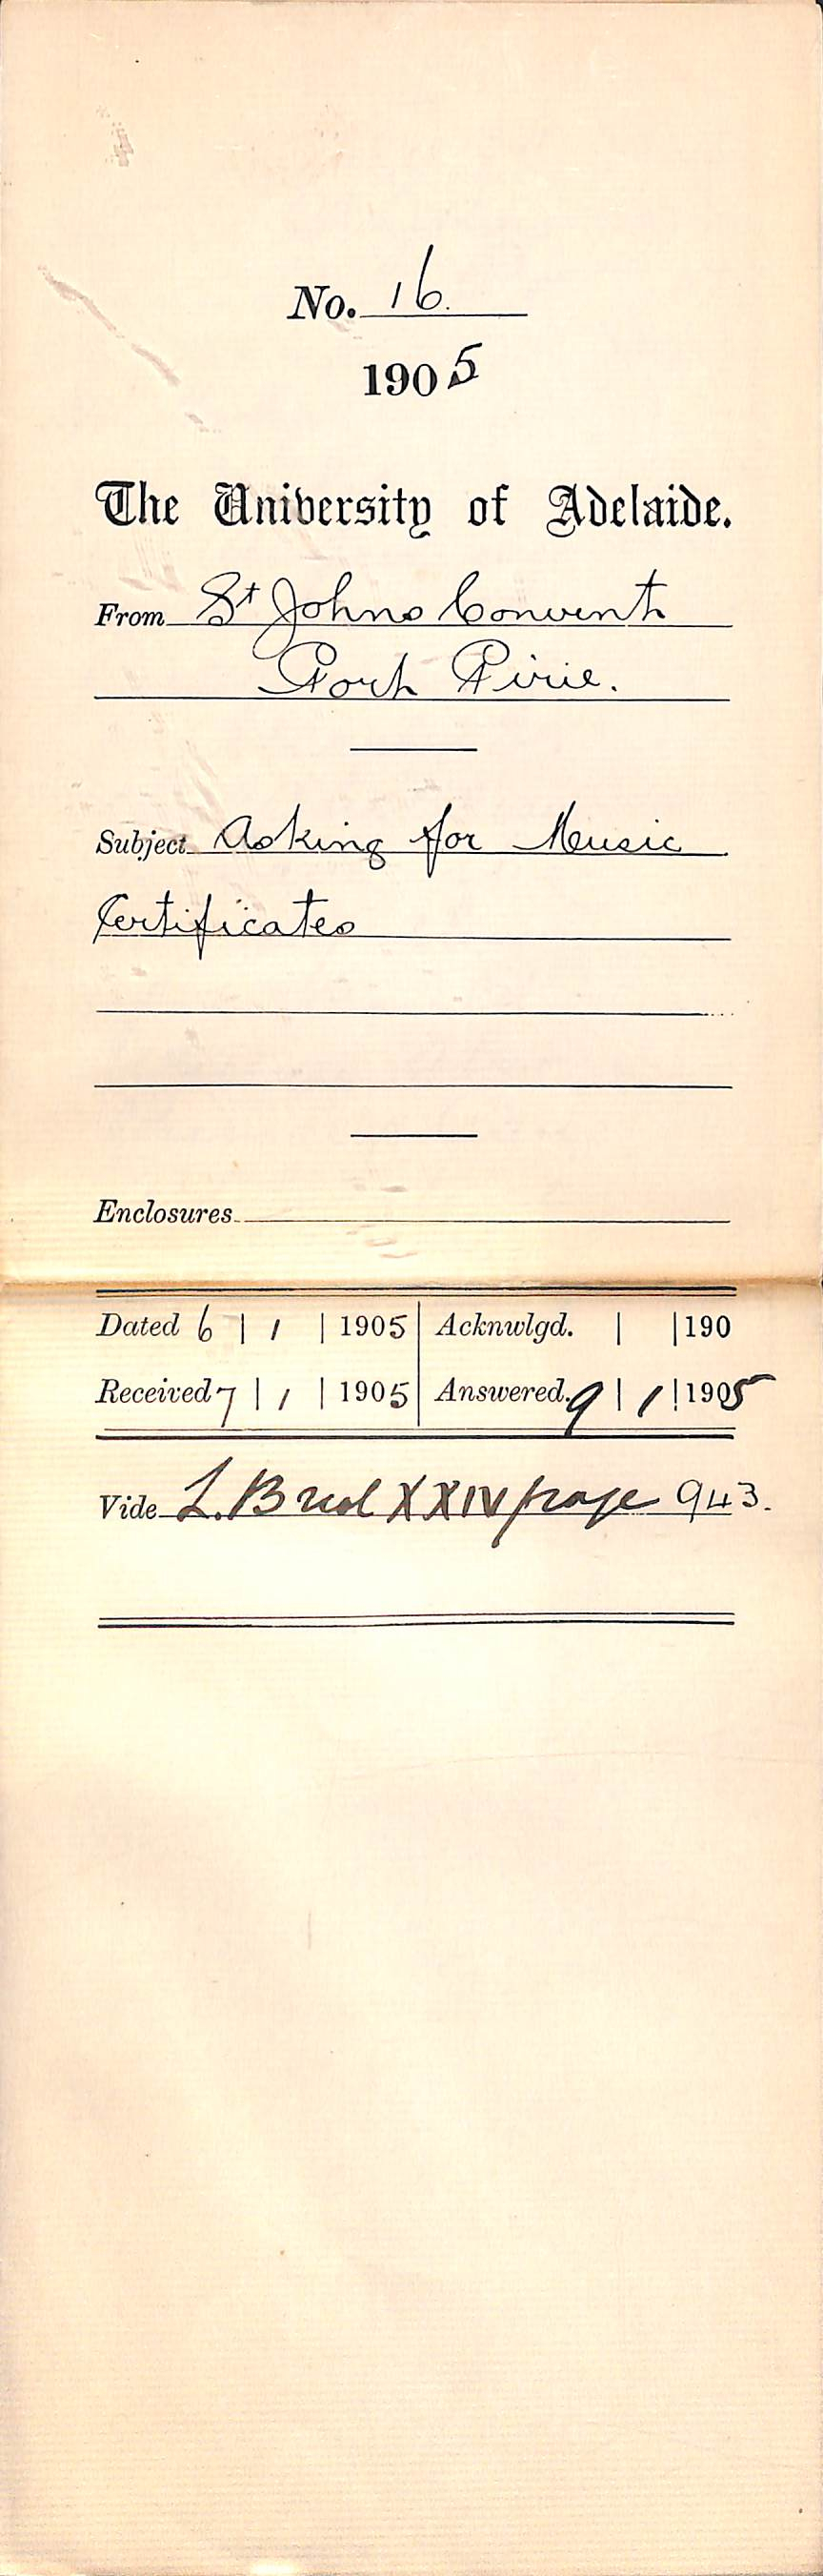 No. 16.
1905
The University of Adelaide.
From St Johns Convent
Port Pirie.
Subject Asking for Music
Certificates
Enclosures
Dated 6 | 1 | 1905 | Acknwlgd. | | 190
Received 7 | 1 | 1905 | Answered. 9 | 1 | 1905
Vide L.B vol XXIV page 943.